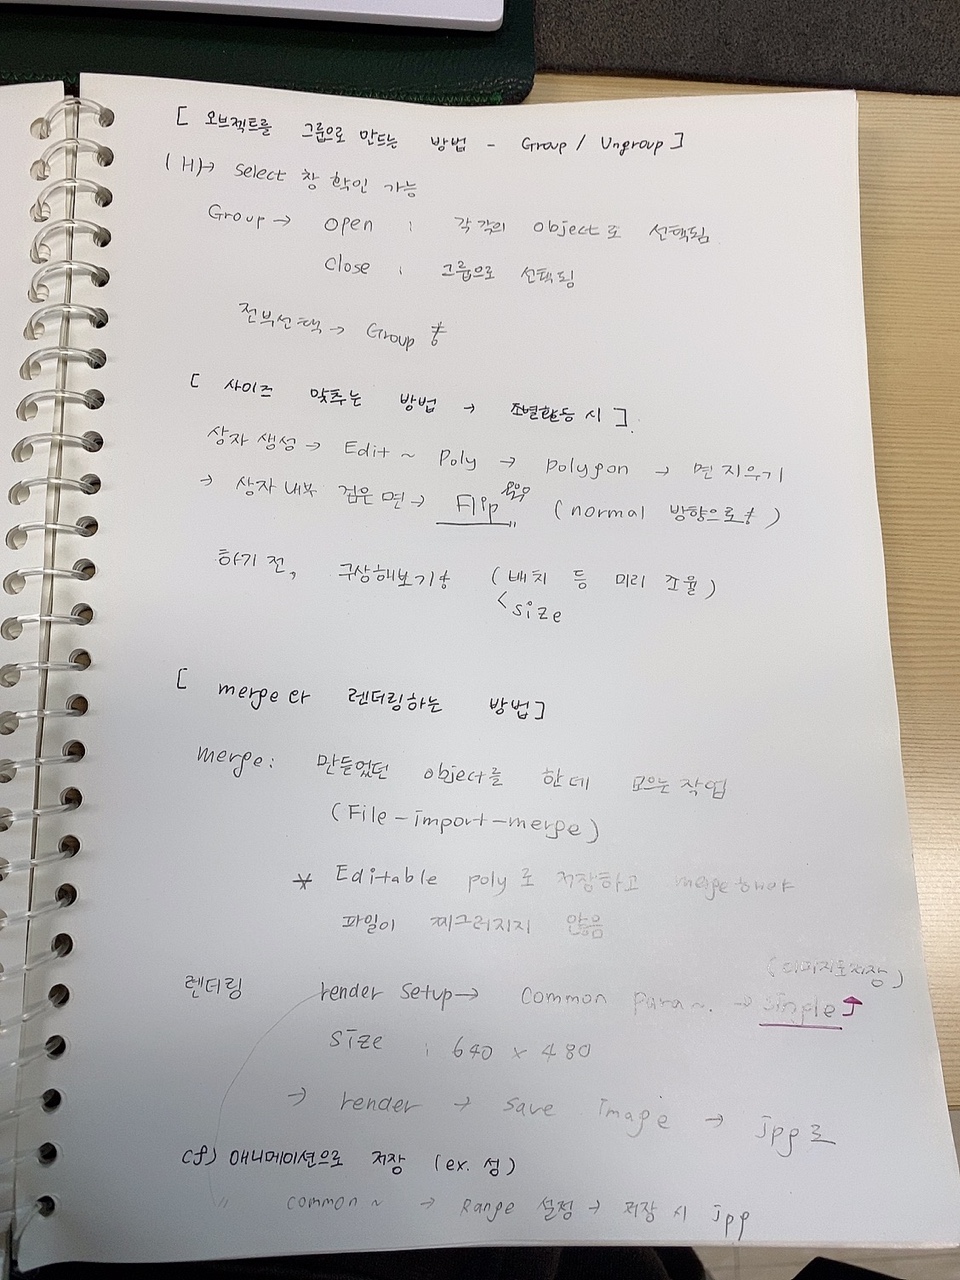 [ 오브젝트를 그룹으로 만드는 방법 - Group / Ungroup ]
(H)→ select 창 확인 가능
Group → open : 각각의 object로 선택됨
close : 그룹으로 선택됨
전부선택 → Group 후
[ 사이즈 맞추는 방법 → 조별활동 시 ].
상자 생성 → Edit ~ Poly → polygon → 면 지우기
→ 상자 내부 검은 면 → Flip (normal 방향으로)
하기 전, 구상해보기 (배치 등 미리 조율)
< size
[ merge와 렌더링하는 방법 ]
merge : 만들었던 object를 한데 모으는 작업
(File - import - merge)
* Editable poly로 저장하고 merge해야
파일이 찌그러지지 않음
(이미지로 저장)
렌더링 render setup → common para~. → single ↑
size : 640 x 480
→ render → save image → jpg로
cf) 애니메이션으로 저장 (ex. 성)
〃 common ~ → Range 설정 → 저장 시 jpg